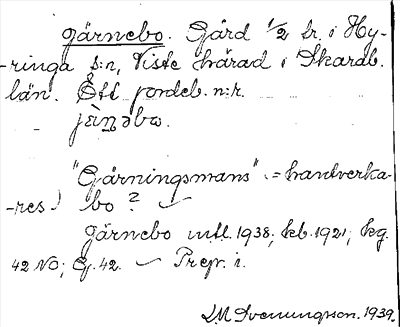 Gärnebo. Gård 1/2 tr. i Hy-
-ringa s:n, Viste härad i Skarab.
län. Ett jordeb. n:r.
"Gärningsmans" = hantverka-
-res) bo? ✓
Gärnebo mtl. 1938; kb. 1921; kg.
42 NO; G. 42. ✓ Prepr. i.
L M Svenungsson. 1939.